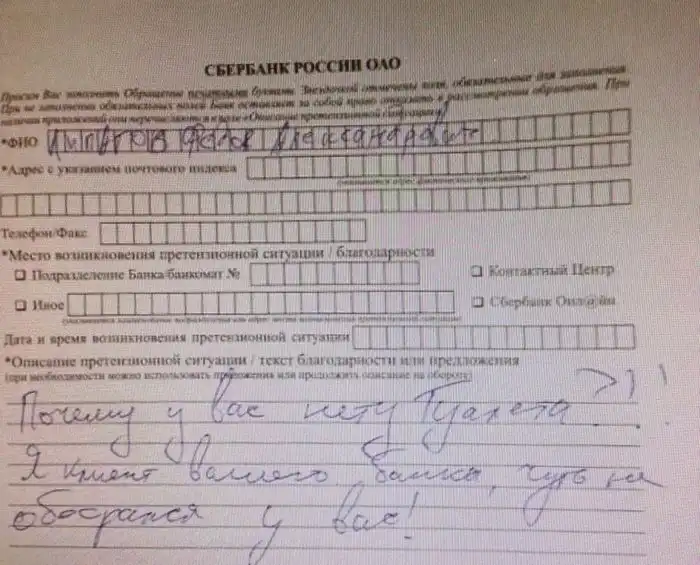 СБЕРБАНК РОССИИ ОАО
Просим Вас заполнить Обращение печатными буквами. Звездочкой отмечены поля, обязательные для заполнения.
При не заполнении обязательных полей Банк оставляет за собой право отказать в рассмотрении обращения. При
наличии приложений они перечисляются в поле «Описание претензионной ситуации»
*ФИО
*Адрес с указанием почтового индекса
Телефон/Факс
*Место возникновения претензионной ситуации / благодарности
Подразделение Банка/банкомат №
Контактный Центр
Иное
Сбербанк Онл@йн
Дата и время возникновения претензионной ситуации
*Описание претензионной ситуации / текст благодарности или предложения
(при необходимости можно использовать приложения или продолжить описание на обороте)
Почему у вас нету Туалета ?!!
Я клиент вашего банка, чуть не
обосрался у вас!